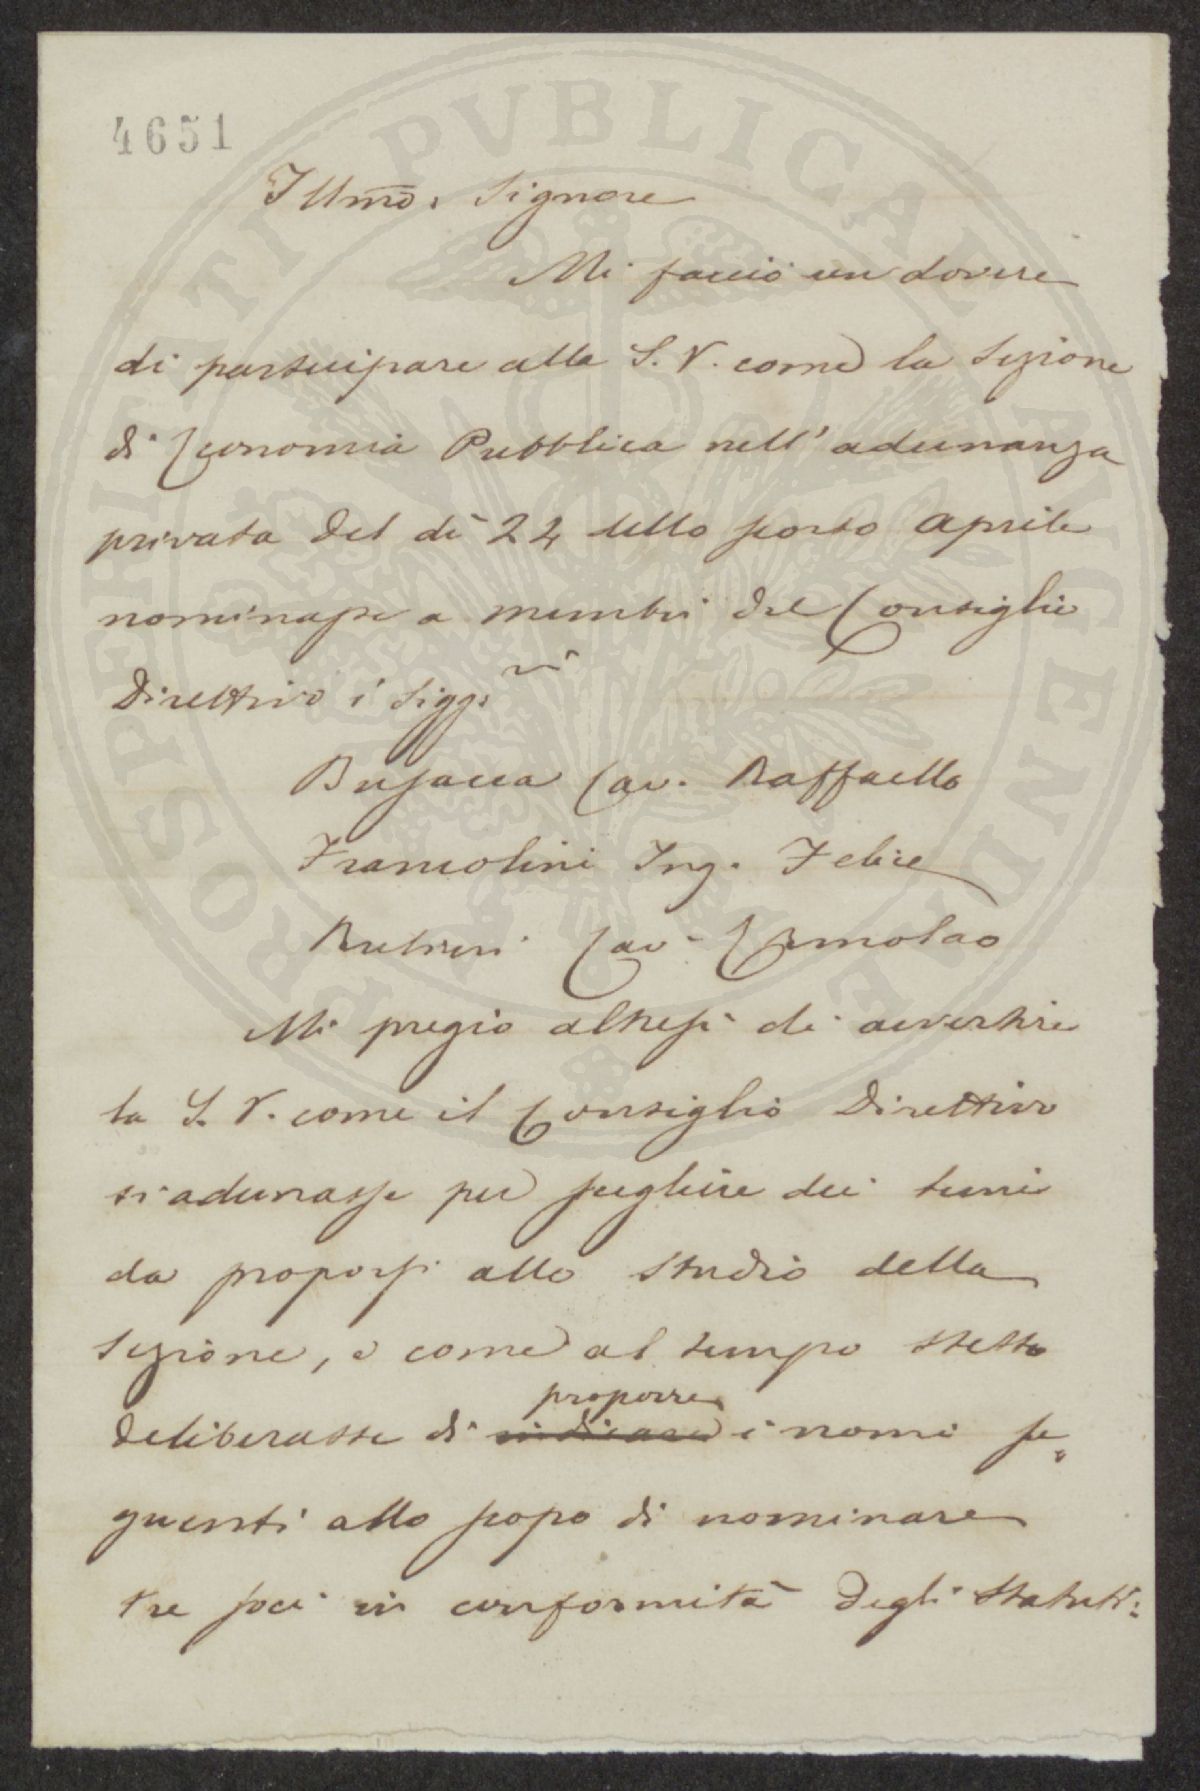 4651
Illmo. Signore
Mi faccio un dovere
di partecipare alla S. V. come la Sezione
di Economia Pubblica nell' adunanza
privata del dì 24 dello scorso Aprile
nominasse a membri del Consiglio
Direttivo i Sigg.ri
Busacca Cav. Raffaello
Francolini Ing. Felice
Rubieri Cav. Ermolao
Mi pregio altresì di avvertire
la S. V. come il Consiglio Direttivo
si adunasse per scegliere dei temi
da proporsi allo studio della
Sezione, e come al tempo stesso
proporre
deliberasse di indicare i nomi se-
guenti allo scopo di nominare
tre soci in conformità degli Statuti:
PROSPERITATI PVBLICAE AVGENDAE